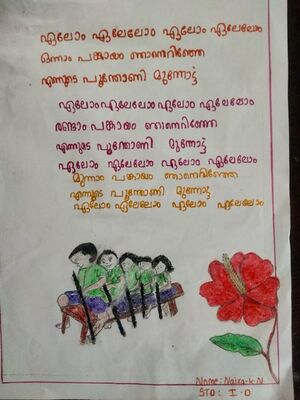 ഏലോം ഏലേലോം ഏലോം ഏലേലോം
ഒന്നാം പങ്കായം ഞാനെറിഞ്ഞേ
എന്നുടെ പൂന്തോണി മുന്നോട്ട്
ഏലോം ഏലേലോം ഏലോം ഏലേലോം
രണ്ടാം പങ്കായം ഞാനെറിഞ്ഞേ
എന്നുടെ പൂന്തോണി മുന്നോട്ട്
ഏലോം ഏലേലോം ഏലോം ഏലേലോം
മൂന്നാം പങ്കായം ഞാനെറിഞ്ഞേ
എന്നുടെ പൂന്തോണി മുന്നോട്ട്
ഏലോം ഏലേലോം ഏലോം ഏലേലോം
Name: Naira.K.N
STD : I-D